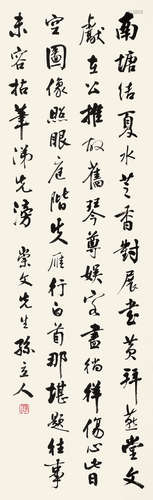 南塘結夏水芝香對展書黃拜燕堂文
獻在公推故舊琴尊娛客盡徜徉傷心此日
空圖像照眼庭階失雁行白首那堪題往事
未容拈筆涕先滂 崇文先生 孫立人